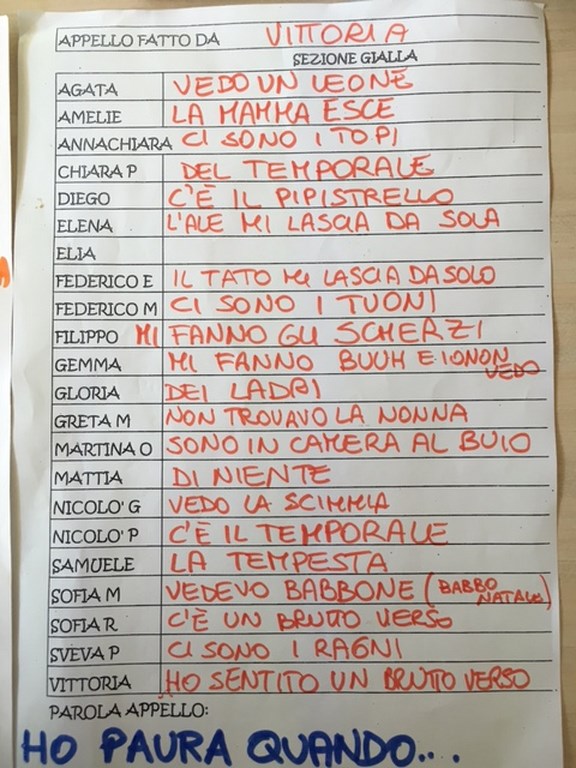 APPELLO FATTO DA VITTORIA
SEZIONE GIALLA
AGATA VEDO UN LEONE
AMELIE LA MAMMA ESCE
ANNACHIARA CI SONO I TOPI
CHIARA P DEL TEMPORALE
DIEGO C'È IL PIPISTRELLO
ELENA L'ALE MI LASCIA DA SOLA
ELIA
FEDERICO E IL TATO MI LASCIA DA SOLO
FEDERICO M CI SONO I TUONI
FILIPPO MI FANNO GLI SCHERZI
GEMMA MI FANNO BUUH E IO NON
VEDO
GLORIA DEI LADRI
GRETA M NON TROVAVO LA NONNA
MARTINA O SONO IN CAMERA AL BUIO
MATTIA DI NIENTE
NICOLO' G VEDO LA SCIMMIA
NICOLO' P C'È IL TEMPORALE
SAMUELE LA TEMPESTA
SOFIA M VEDEVO BABBONE (BABBO
NATALE)
SOFIA R C'È UN BRUTTO VERSO
SVEVA P CI SONO I RAGNI
VITTORIA HO SENTITO UN BRUTTO VERSO
PAROLA APPELLO:
HO PAURA QUANDO...